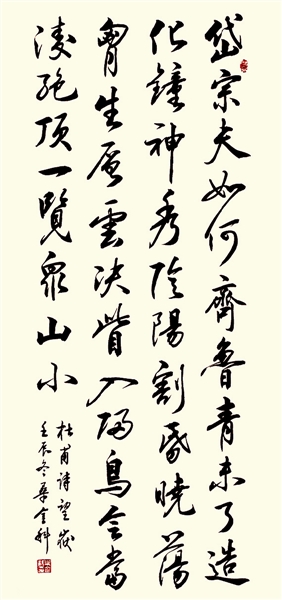 岱宗夫如何齊魯青未了造
化鐘神秀陰陽割昏曉蕩
胷生層雲決眥入歸鳥會當
凌絕頂一覽眾山小
杜甫詩望嶽
壬辰冬